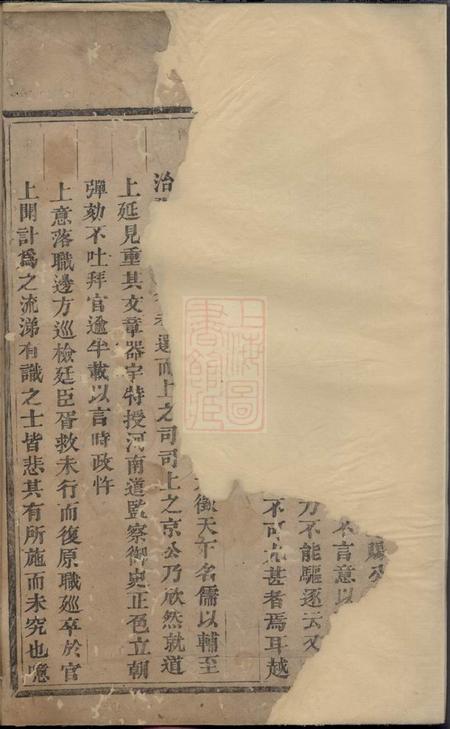 驅公
不言意以
力不能驅逐云又
不可尤甚者焉耳越
徵天下名儒以輔至
治 選而上之司司上之京公乃欣然就道
上延見重其文章器宇特授河南道監察御史正色立朝
彈劾不吐拜官逾半載以言時政忤
上意落職邊方巡檢廷臣胥救未行而復原職廵卒於官
上聞計爲之流涕有識之士皆悲其有所施而未究也噫
上海圖書館藏